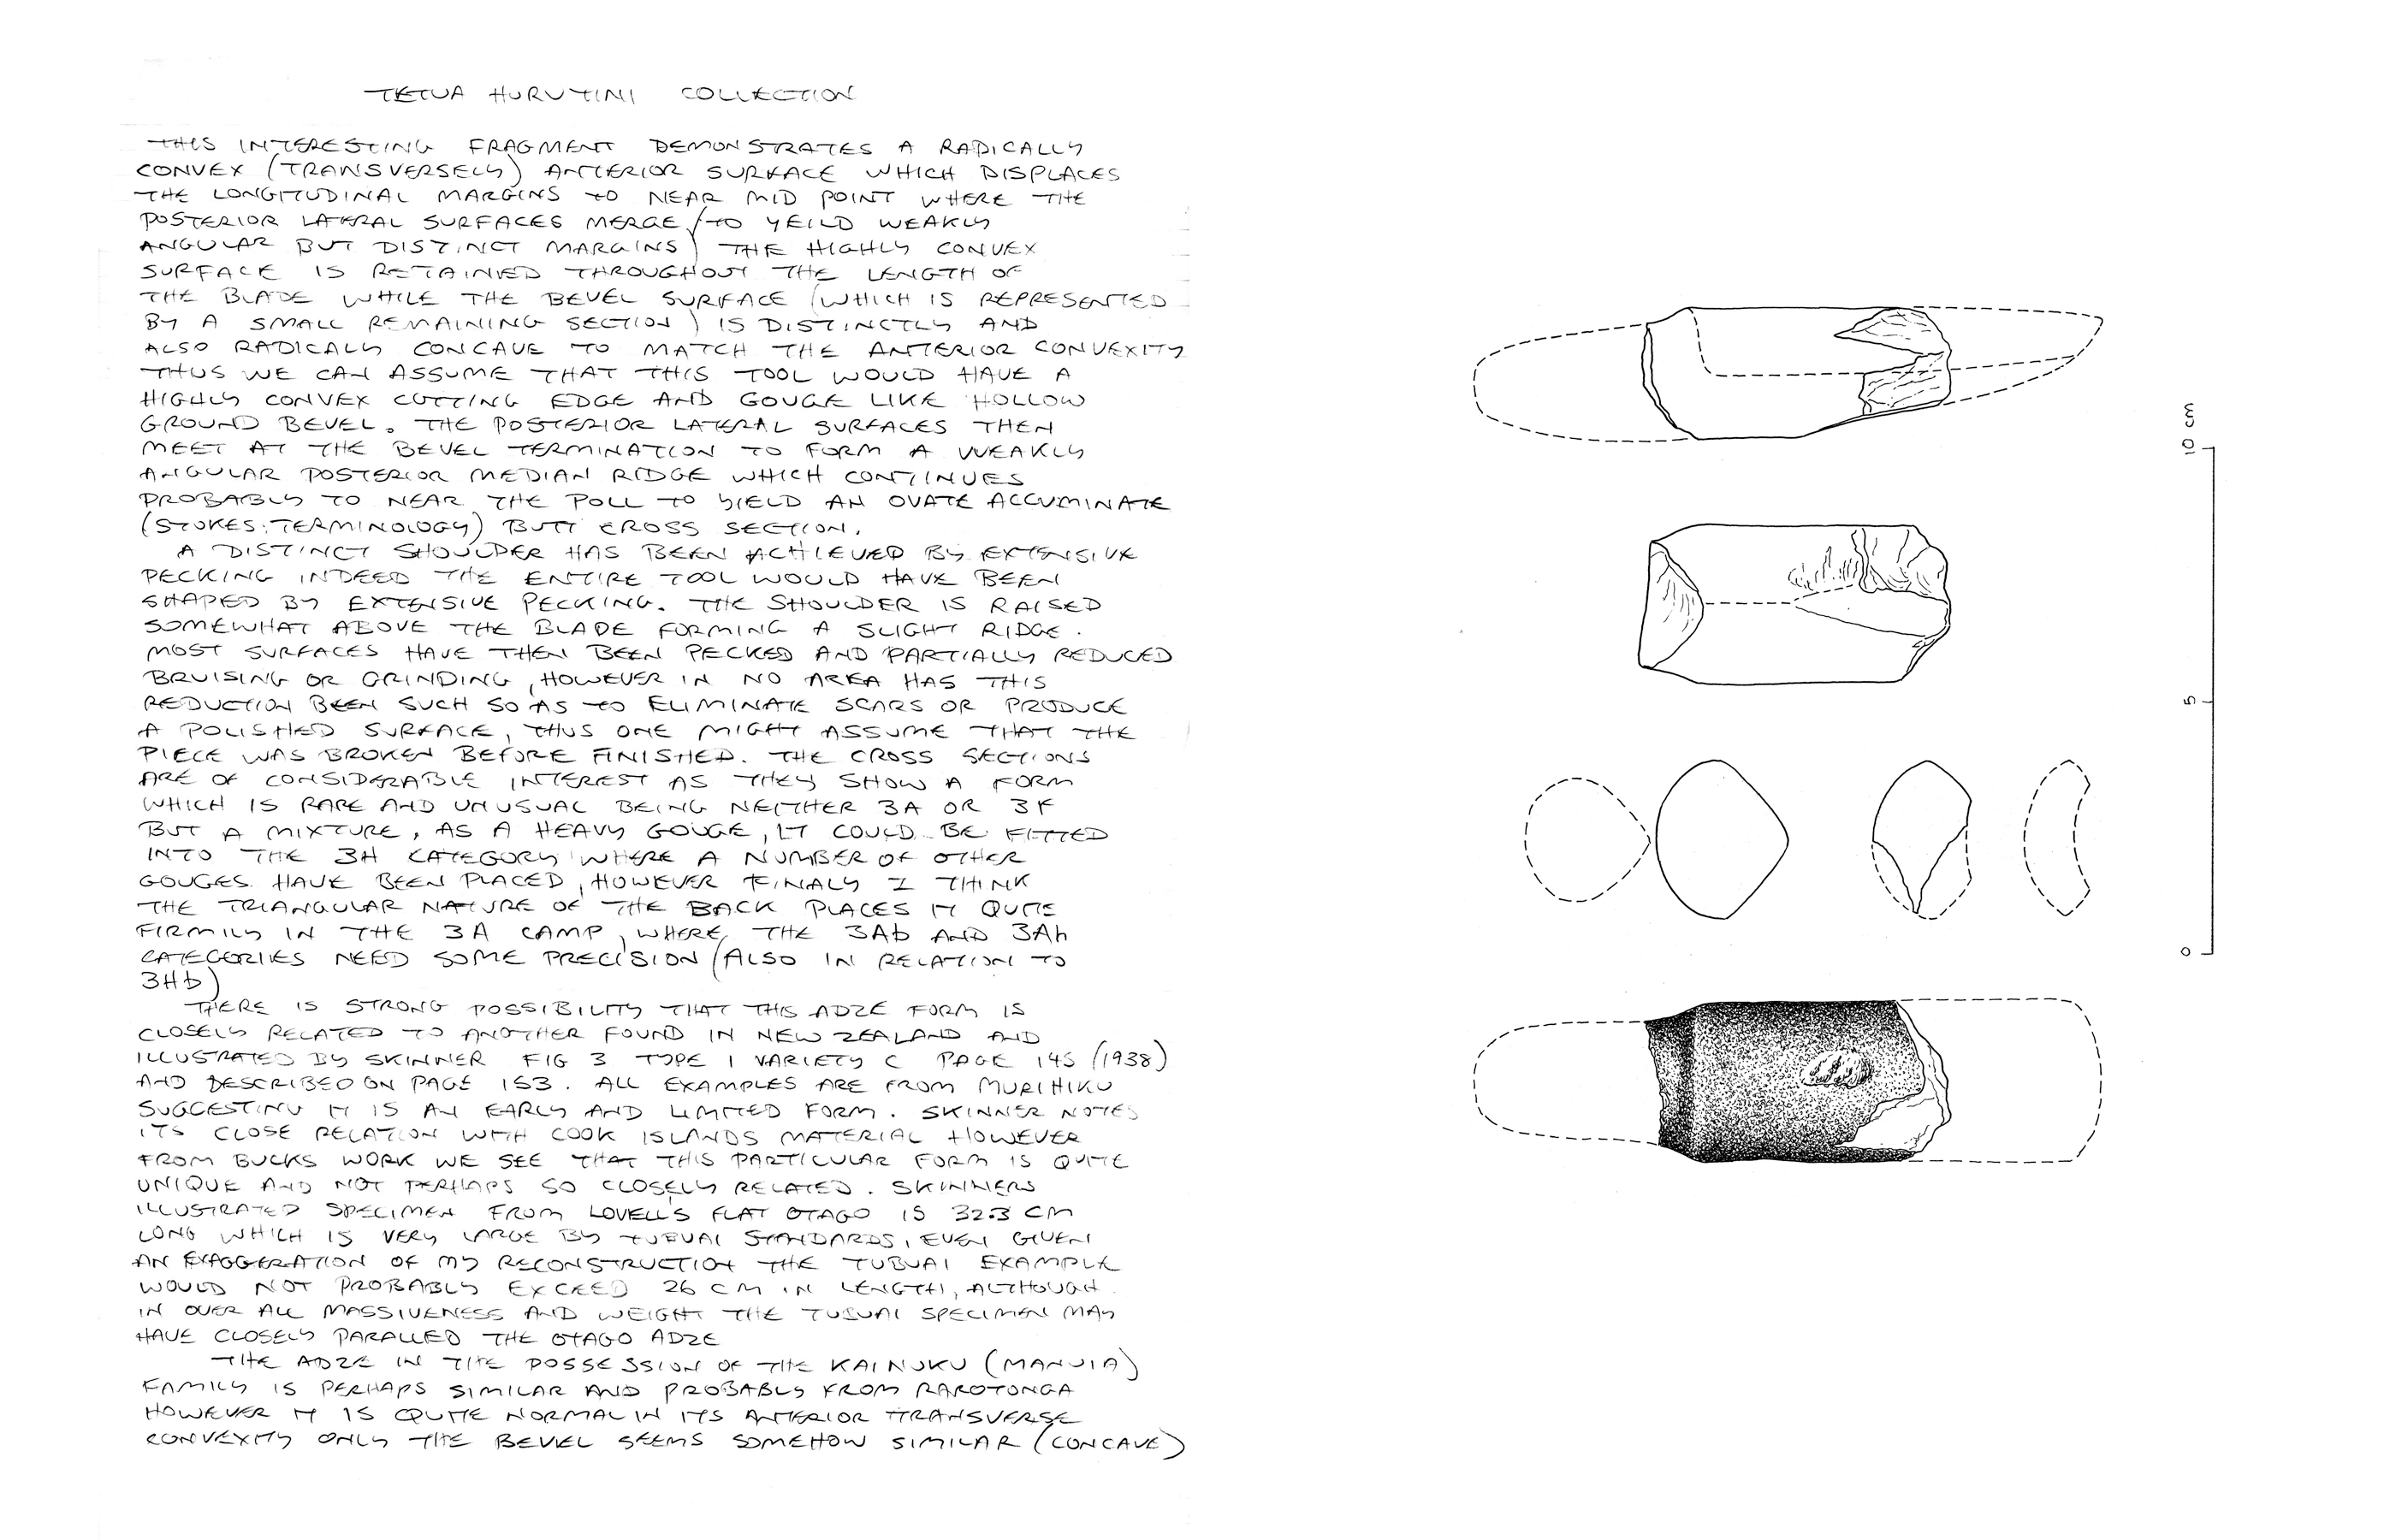 TETUA HURUTINI COLLECTION
THIS INTERESTING FRAGMENT DEMONSTRATES A RADICALLY
CONVEX (TRANSVERSELY) ANTERIOR SURFACE WHICH DISPLACES
THE LONGITUDINAL MARGINS TO NEAR MID POINT WHERE THE
POSTERIOR LATERAL SURFACES MERGE (TO YEILD WEAKLY
ANGULAR BUT DISTINCT MARGINS) THE HIGHLY CONVEX
SURFACE IS RETAINED THROUGHOUT THE LENGTH OF
THE BLADE WHILE THE BEVEL SURFACE (WHICH IS REPRESENTED
BY A SMALL REMAINING SECTION) IS DISTINCTLY AND
ALSO RADICALLY CONCAVE TO MATCH THE ANTERIOR CONVEXITY
THUS WE CAN ASSUME THAT THIS TOOL WOULD HAVE A
HIGHLY CONVEX CUTTING EDGE AND GOUGE LIKE HOLLOW
GROUND BEVEL. THE POSTERIOR LATERAL SURFACES THEN
MEET AT THE BEVEL TERMINATION TO FORM A WEAKLY
ANGULAR POSTERIOR MEDIAN RIDGE WHICH CONTINUES
PROBABLY TO NEAR THE POLL TO YIELD AN OVATE ACCUMINATE
(STOKES:TERMINOLOGY) BUTT CROSS SECTION.
A DISTINCT SHOULDER HAS BEEN ACHIEVED BY EXTENSIVE
PECKING INDEED THE ENTIRE TOOL WOULD HAVE BEEN
SHAPED BY EXTENSIVE PECKING. THE SHOULDER IS RAISED
SOMEWHAT ABOVE THE BLADE FORMING A SLIGHT RIDGE.
MOST SURFACES HAVE THEN BEEN PECKED AND PARTIALLY REDUCED
BRUISING OR GRINDING, HOWEVER IN NO AREA HAS THIS
REDUCTION BEEN SUCH SO AS TO ELIMINATE SCARS OR PRODUCE
A POLISHED SURFACE, THUS ONE MIGHT ASSUME THAT THE
PIECE WAS BROKEN BEFORE FINISHED. THE CROSS SECTIONS
ARE OF CONSIDERABLE INTEREST AS THEY SHOW A FORM
WHICH IS RARE AND UNUSUAL BEING NEITHER 3A OR 3F
BUT A MIXTURE, AS A HEAVY GOUGE, IT COULD BE FITTED
INTO THE 3H CATEGORY WHERE A NUMBER OF OTHER
GOUGES HAVE BEEN PLACED, HOWEVER FINALY I THINK
THE TRIANGULAR NATURE OF THE BACK PLACES IT QUITE
FIRMILY IN THE 3A CAMP, WHERE THE 3Ab AND 3Ah
CATEGORIES NEED SOME PRECISION (ALSO IN RELATION TO
3Hb)
THERE IS STRONG POSSIBILITY THAT THIS ADZE FORM IS
CLOSELY RELATED TO ANOTHER FOUND IN NEW ZEALAND AND
ILLUSTRATED BY SKINNER FIG 3 TYPE 1 VARIETY C PAGE 145 (1938)
AND DESCRIBED ON PAGE 153. ALL EXAMPLES ARE FROM MURIHIKU
SUGGESTING IT IS AN EARLY AND LIMITED FORM. SKINNER NOTES
ITS CLOSE RELATION WITH COOK ISLANDS MATERIAL HOWEVER
FROM BUCKS WORK WE SEE THAT THIS PARTICULAR FORM IS QUITE
UNIQUE AND NOT PERHAPS SO CLOSELY RELATED. SKINNERS
ILLUSTRATED SPECIMEN FROM LOVELL'S FLAT OTAGO IS 32.3 CM
LONG WHICH IS VERY LARGE BY TUBUAI STANDARDS, EVEN GIVEN
AN EXAGGERATION OF MY RECONSTRUCTION THE TUBUAI EXAMPLE
WOULD NOT PROBABLY EXCEED 26 CM IN LENGTH, ALTHOUGH
IN OVER ALL MASSIVENESS AND WEIGHT THE TUBUAI SPECIMEN MAY
HAVE CLOSELY PARALLED THE OTAGO ADZE
THE ADZE IN THE POSSESSION OF THE KAINUKU (MANUIA)
FAMILY IS PERHAPS SIMILAR AND PROBABLY FROM RAROTONGA
HOWEVER IT IS QUITE NORMAL IN ITS ANTERIOR TRANSVERSE
CONVEXITY ONLY THE BEVEL SEEMS SOMEHOW SIMILAR (CONCAVE)
10 cm
5
0